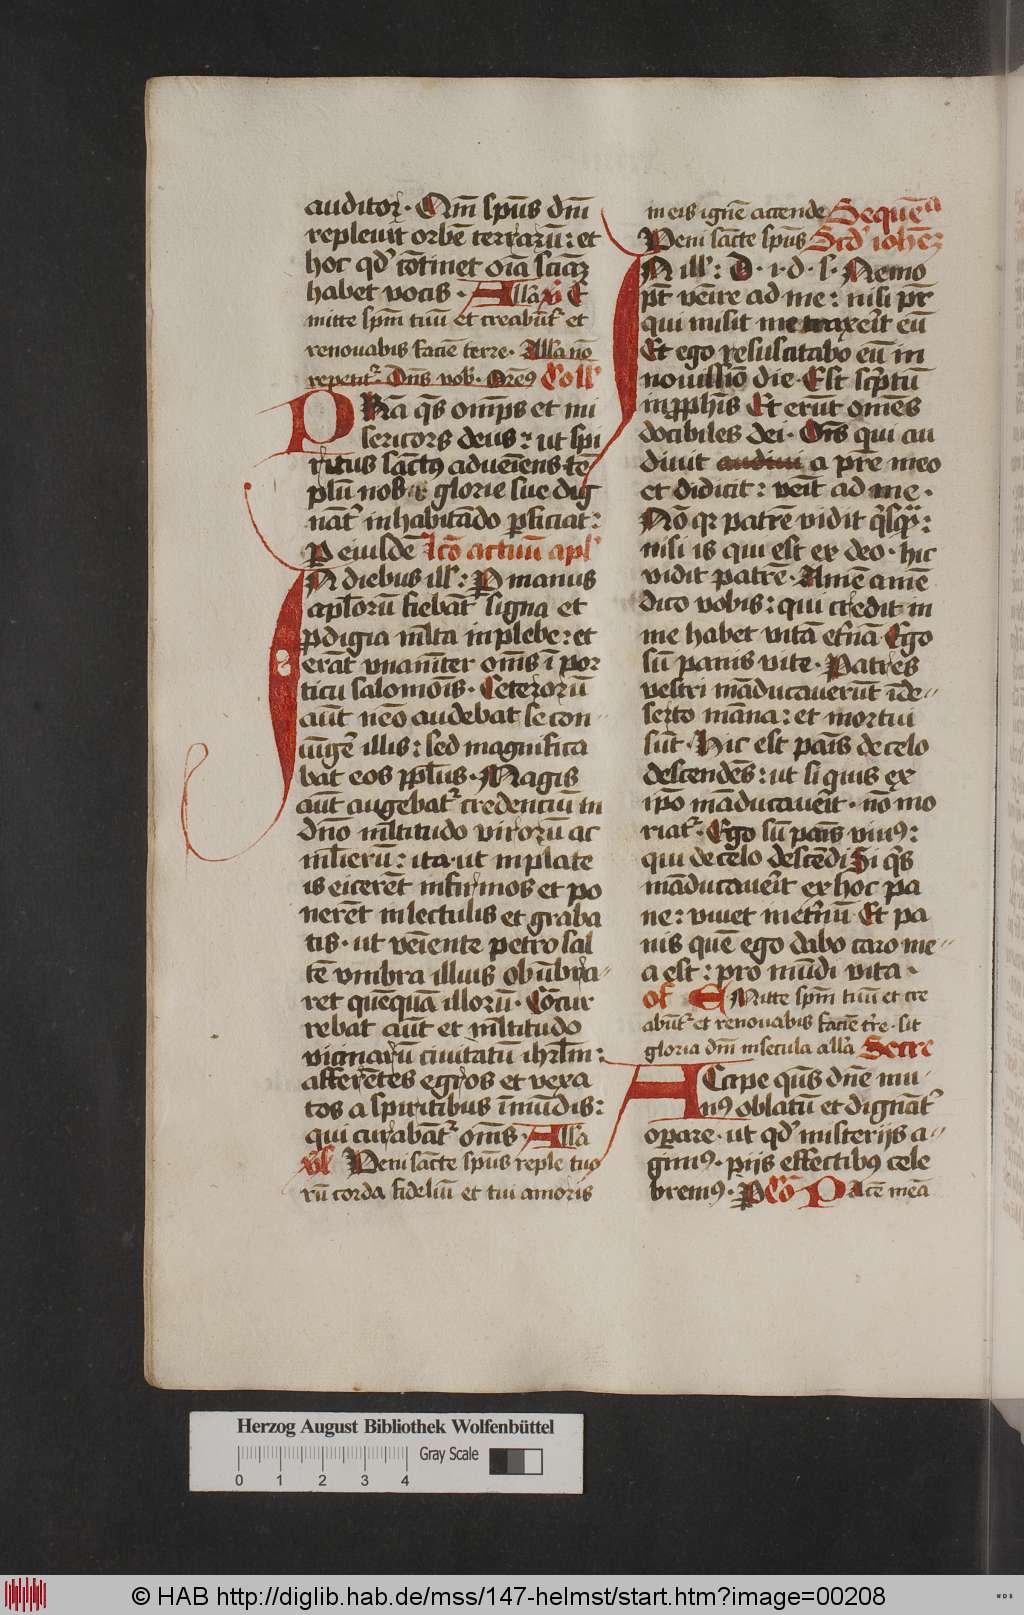 auditor(ꝝ)· Qm̄ sp̄us dn̄i
repleuit orbē terrarū: et
hoc qd' cōtinet oīa sciāꝫ
habet vocis · Allā Vꝰ E
mitte sp̄m tuū et creabūt᷑ et
renouabis faciē terre· All'a nō
repetit᷑ Dn̄s vob᷒· Orem⁹ Coll'
PRā q̄s om̄ps et mi
sericors deus: ut spi
ritus sāct⁹ adueīens tē
plū nob᷒ glorie sue dig
nāt᷑ inhabitādo ꝑficiat:
ꝑ eiusdē Lcō actuū apl'
IN diebus ill': P manus
apl̄orū fiebāt signa et
ꝓdigia ml̄ta in plebe: et
erāt vnanīter om̄s ī por
ticu salomōis· Ceterorū
aūt nēo audebat se con
iūgē illis: sed magnifica
bat eos ppl̄us· Magis
aūt augebat᷑ credenciū in
dn̄o ml̄titudo virorū ac
ml̄ierū: ita ut in plate
is eicerēt infirmos et po
nerēt in lectulis et graba
tis· ut vēiente petro sal
tē vmbra illius obūbra
ret quēquā illorū· Cōcur
rebat aūt et ml̄titudo
vicinarū ciuitatū ihrl̄m:
afferētes egros et vexa
tos a spiritibus īmūdis:
qui curabāt᷑ om̄s· All'a
Veni sācte sp̄us reple tuo
rū corda fideliū et tui amoris
in eis ignē accende Sequēᵃ
Veni sācte sp̄us Scd' iohēꝫ
IN ill': D· i· d· s· Nemo
pt̄ vēire ad me: nisi pr̄
qui misit me traxeīt eū
Et ego resuscitabo eū in
nouissīo die· Est sc̄ptū
in ꝓph̄is Et erūt omēs
docibiles dei· Oīs qui au
diuit audiui a pr̄e meo
et didicit: vēit ad me·
Nō qꝛ patrē vidit q̄sꝗ:
nisi is qui est ex deo· hic
vidit patrē· Amē amē
dico vobis: qui credit in
me habet vitā et̄nā Ego
sū panis vite· Patres
vestri māducauerūt ī de
serto māna: et mortui
sūt· Hic est pāis de celo
descendēs: ut si quis ex
ip̄o māducaueīt· nō mo
riat᷑· Ego sū pāis viu⁹:
qui de celo descēdi Si q̄s
māducaueīt ex hoc pa
ne: viuet in et̄nū Et pa
nis quē ego dabo caro me
a est: pro mūdi vita·
Of EMitte sp̄m tuū et cre
abūt᷑ et renouabis faciē tr̄e· sit
gloria dn̄i in secula all'a Secre
ACcipe qūs dn̄e mu
n⁹ oblatū et dignāt᷑
operare· ut qd' misterijs a
gim⁹· pijs effectib⁹ cele
brem⁹· ꝑ Cō Pacē meā
Herzog August Bibliothek Wolfenbüttel
Gray Scale
0 1 2 3 4
© HAB http://diglib.hab.de/mss/147-helmst/start.htm?image=00208